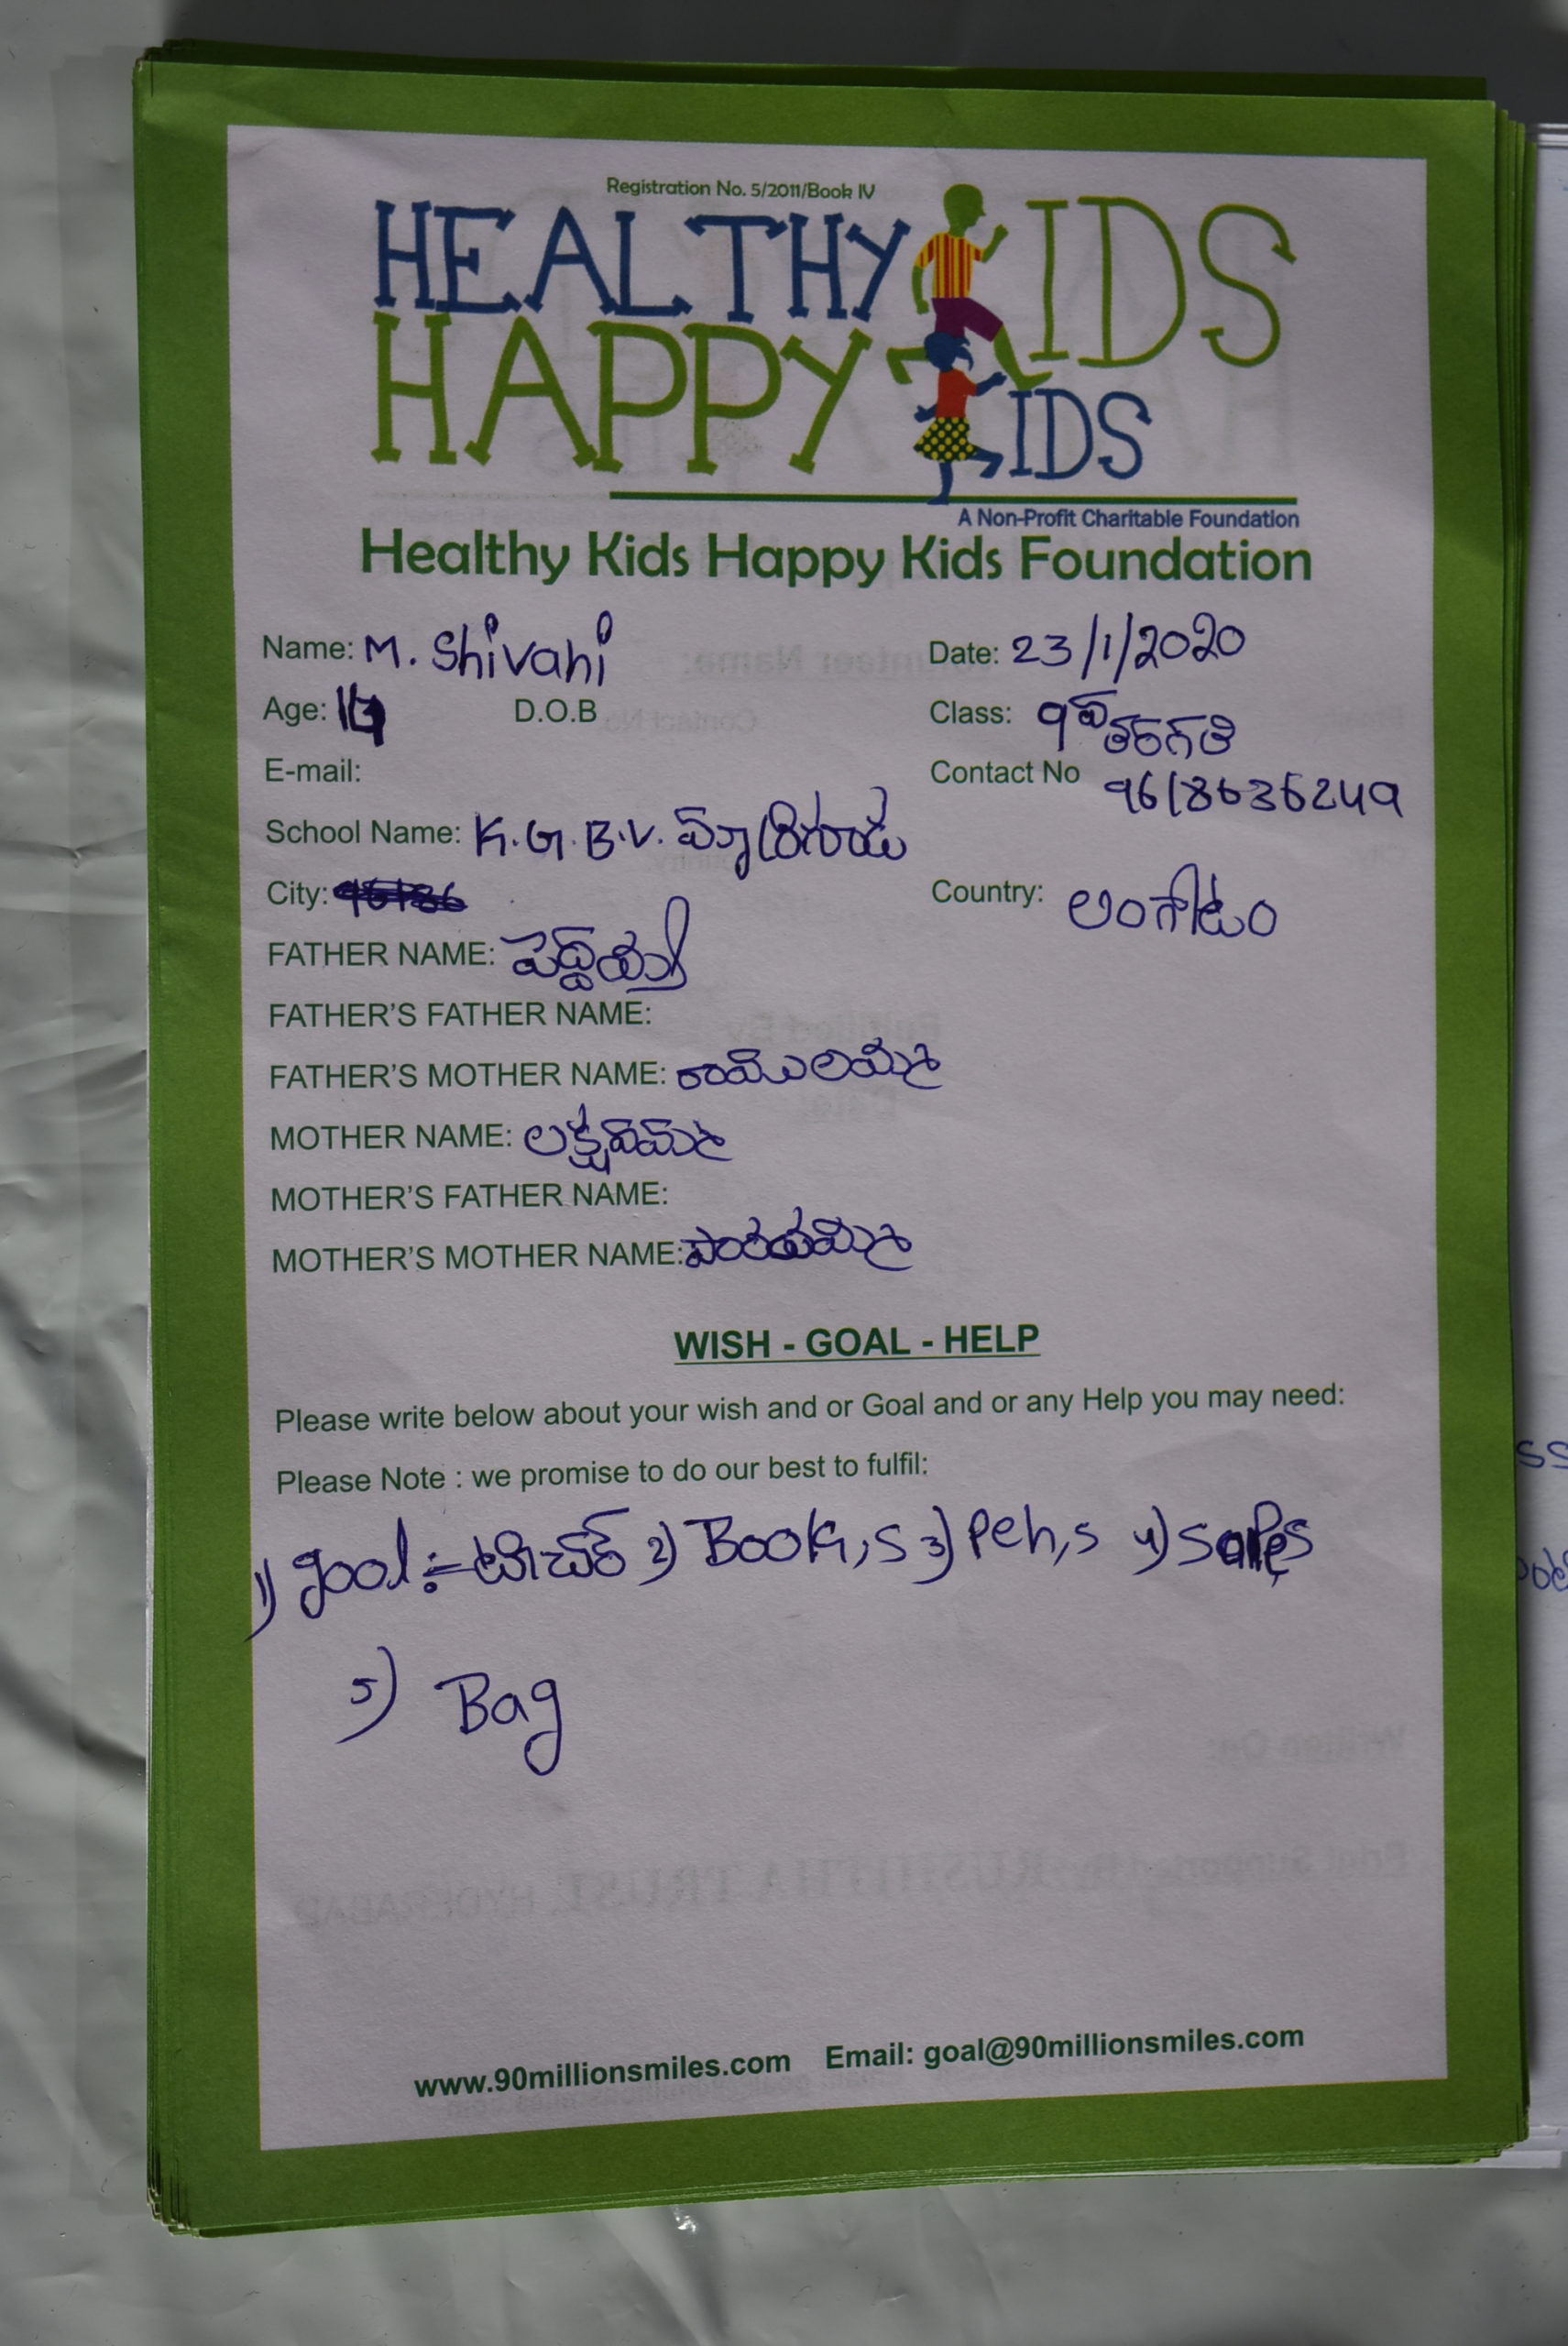 Registration No. 5/2011/Book IV
HEALTHY KIDS
HAPPY KIDS
A Non-Profit Charitable Foundation
Healthy Kids Happy Kids Foundation
Name: M. Shivani Date: 23/1/2020
Age: D.O.B Class: 9వ తరగతి
E-mail: Contact No 9618636249
School Name: K.G.B.V.
City: Country:
FATHER NAME:
FATHER'S FATHER NAME:
FATHER'S MOTHER NAME: రాములమ్మ
MOTHER NAME: లక్ష్మమ్మ
MOTHER'S FATHER NAME:
MOTHER'S MOTHER NAME:
WISH - GOAL - HELP
Please write below about your wish and or Goal and or any Help you may need:
Please Note : we promise to do our best to fulfil:
1) gool :- టీచర్ 2) Book,s 3) Pen,s 4)
5) Bag
www.90millionsmiles.com Email: goal@90millionsmiles.com